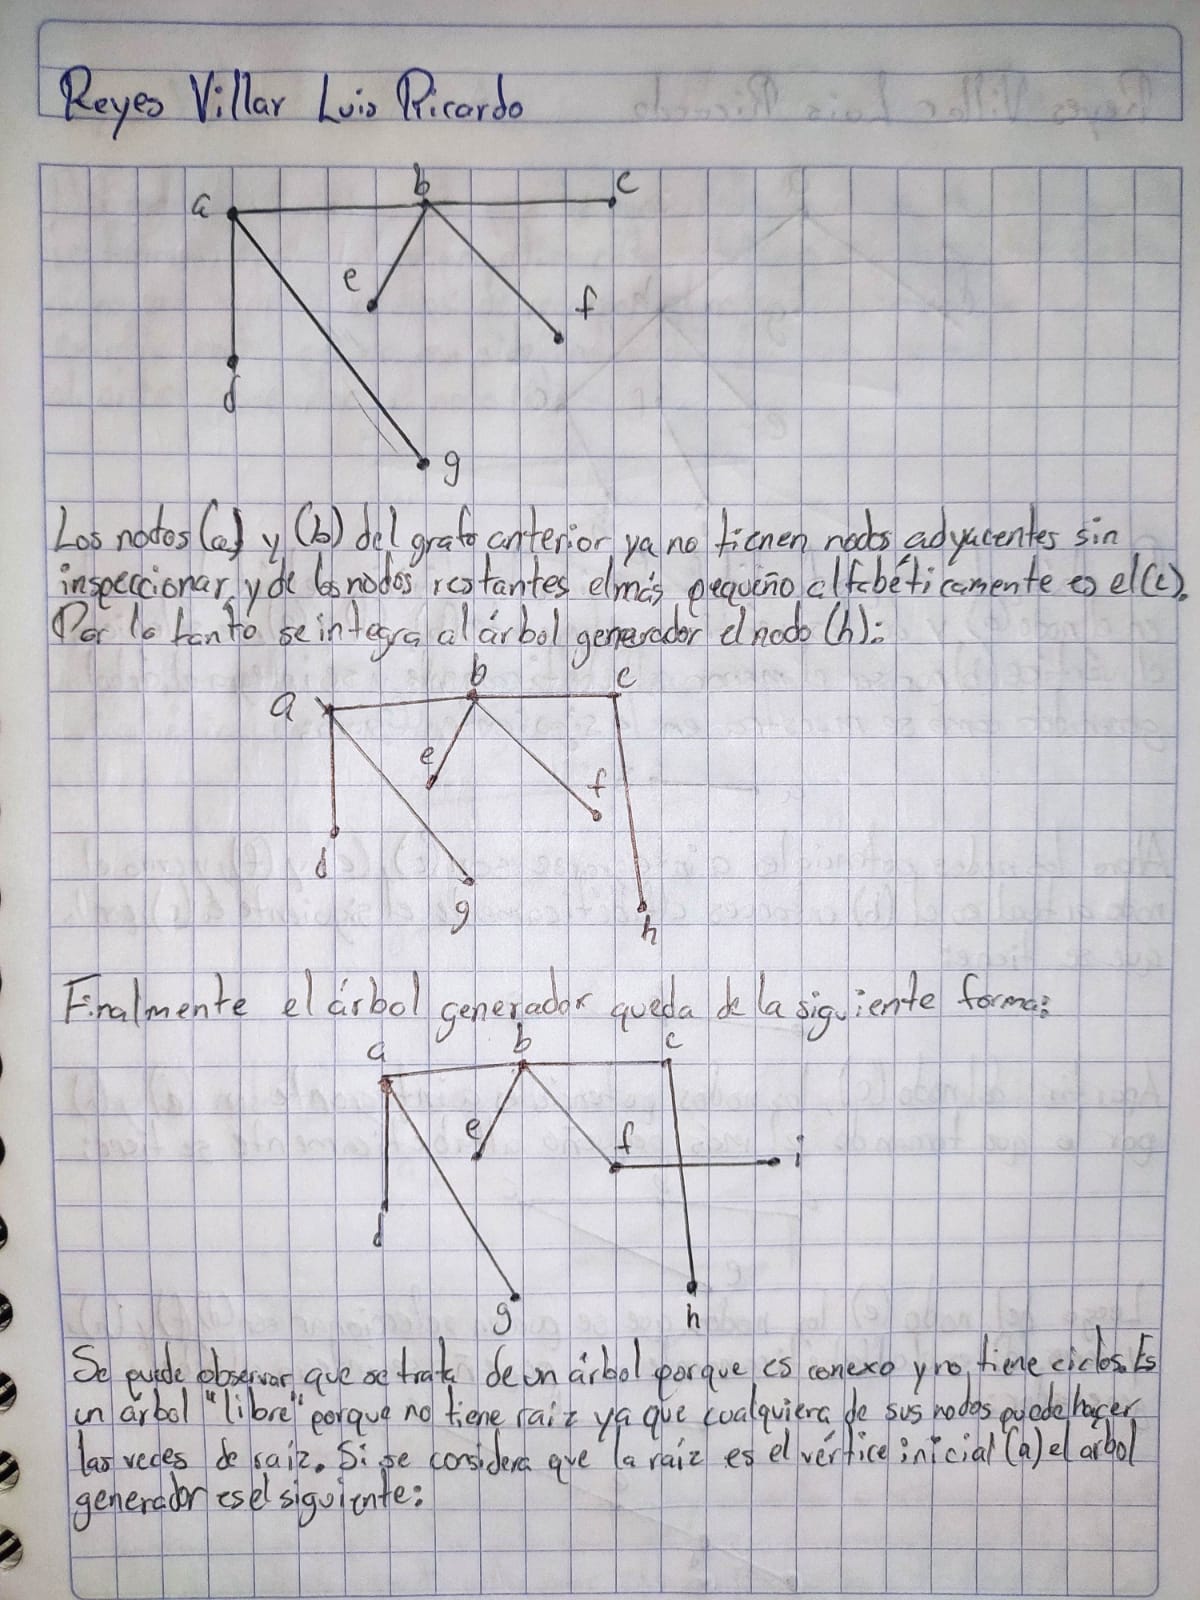 Reyes Villar Luis Ricardo
a b c
e f
d
g
Los nodos (a) y (b) del grafo anterior ya no tienen nodos adyacentes sin
inspeccionar, y de los nodos restantes el más pequeño alfabéticamente es el (c).
Por lo tanto se integra al árbol generador el nodo (h):
a b c
e f
d
g h
Finalmente el árbol generador queda de la siguiente forma:
a b c
e f i
d
g h
Se puede observar que se trata de un árbol porque es conexo y no tiene ciclos. Es
un árbol "libre" porque no tiene raíz ya que cualquiera de sus nodos puede hacer
las veces de raíz. Si se considera que la raíz es el vértice inicial (a) el arbol
generador es el siguiente: